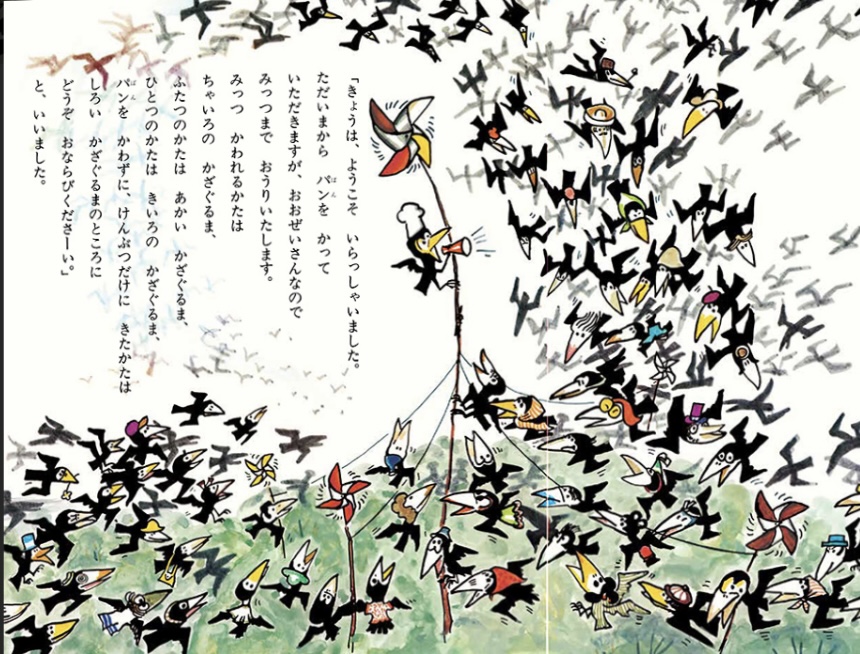 「きょうは、ようこそ　いらっしゃいました。
ただいまから　パンを　かって
いただきますが、おおぜいさんなので
みっつまで　おうりいたします。
みっつ　かわれるかたは
ちゃいろの　かざぐるま、
ふたつのかたは　あかい　かざぐるま、
ひとつのかたは　きいろの　かざぐるま、
パンを　かわずに、けんぶつだけに　きたかたは
しろい　かざぐるまのところに
どうぞ　おならびくださーい。」
と、いいました。